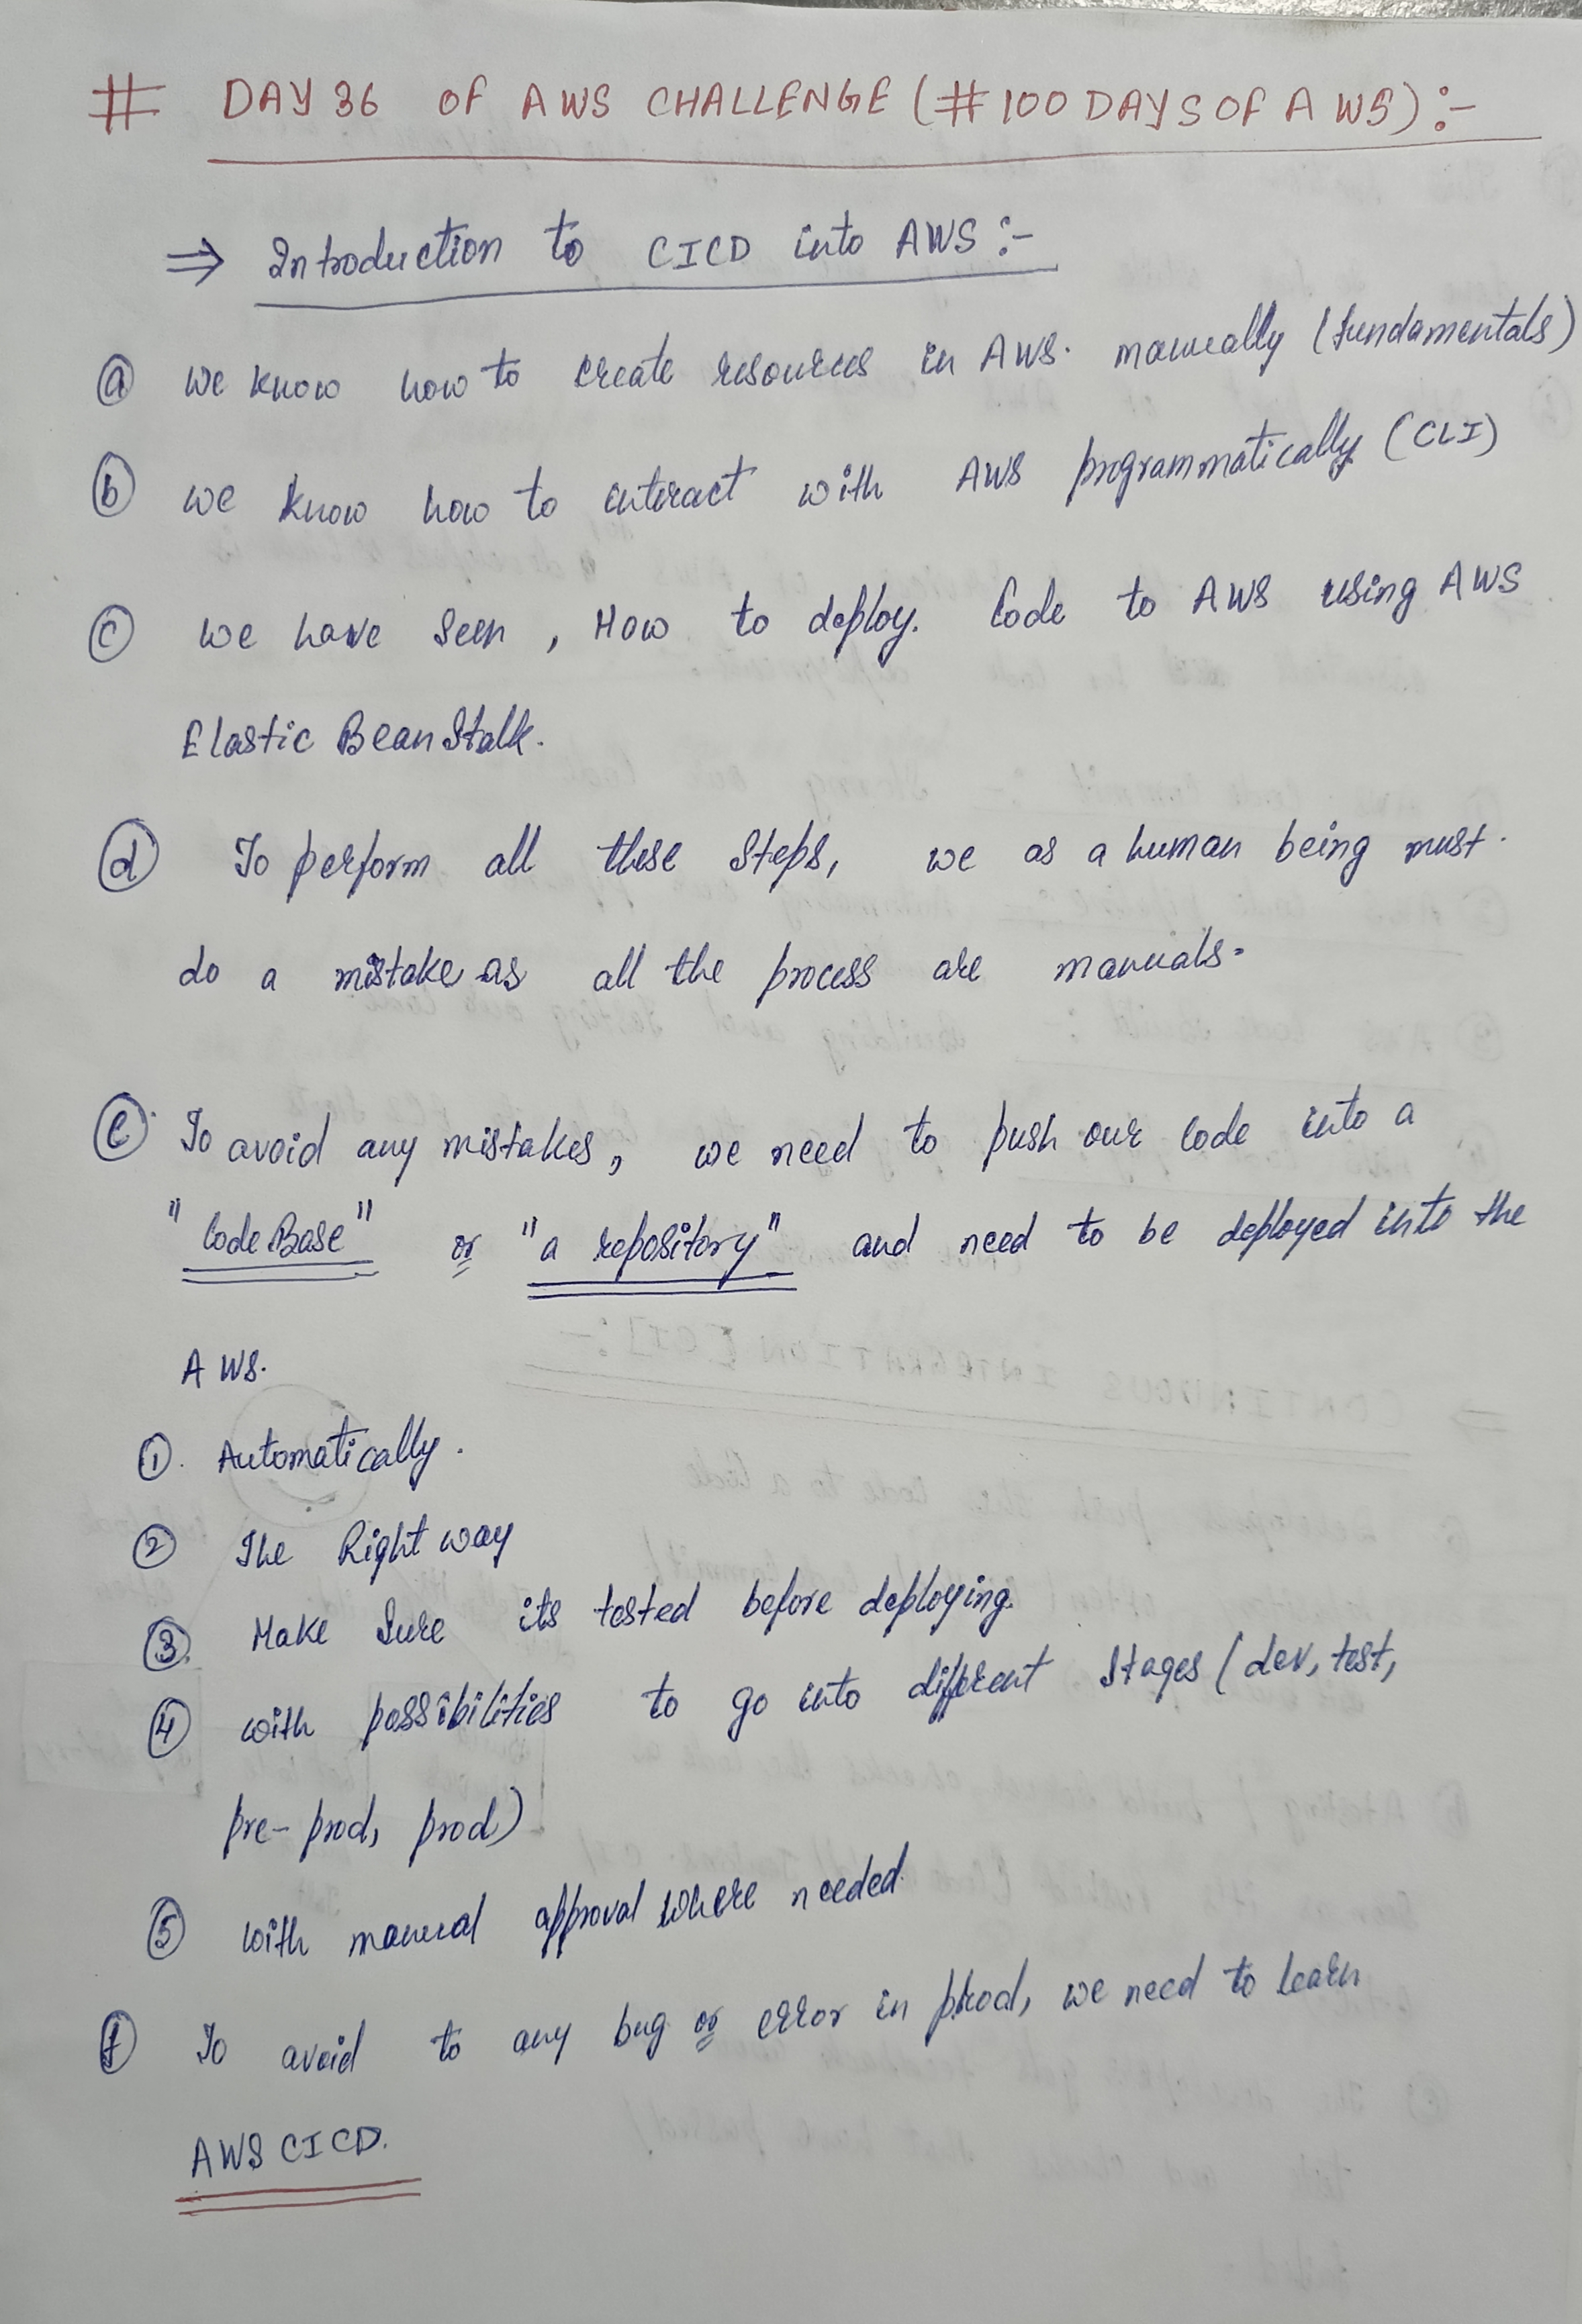 # DAY 36 OF AWS CHALLENGE (#100DAYSOFAWS):-
⇒ Introduction to CICD into AWS :-
ⓐ we know how to create resources in AWS. manually (fundamentals)
ⓑ we know how to interact with AWS programmatically (CLI)
ⓒ we have seen, How to deploy. Code to AWS using AWS
Elastic BeanStalk.
ⓓ To perform all these steps, we as a human being must.
do a mistake as all the process are manuals.
ⓔ To avoid any mistakes, we need to push our code into a
"CodeBase" or "a repository" and need to be deployed into the
AWS.
①. Automatically.
② The Right way
③. Make Sure its tested before deploying.
④ with possibilities to go into different stages (dev, test,
pre-prod, prod)
⑤ with manual approval where needed.
ⓕ To avoid to any bug or error in prod, we need to learn
AWS CICD.